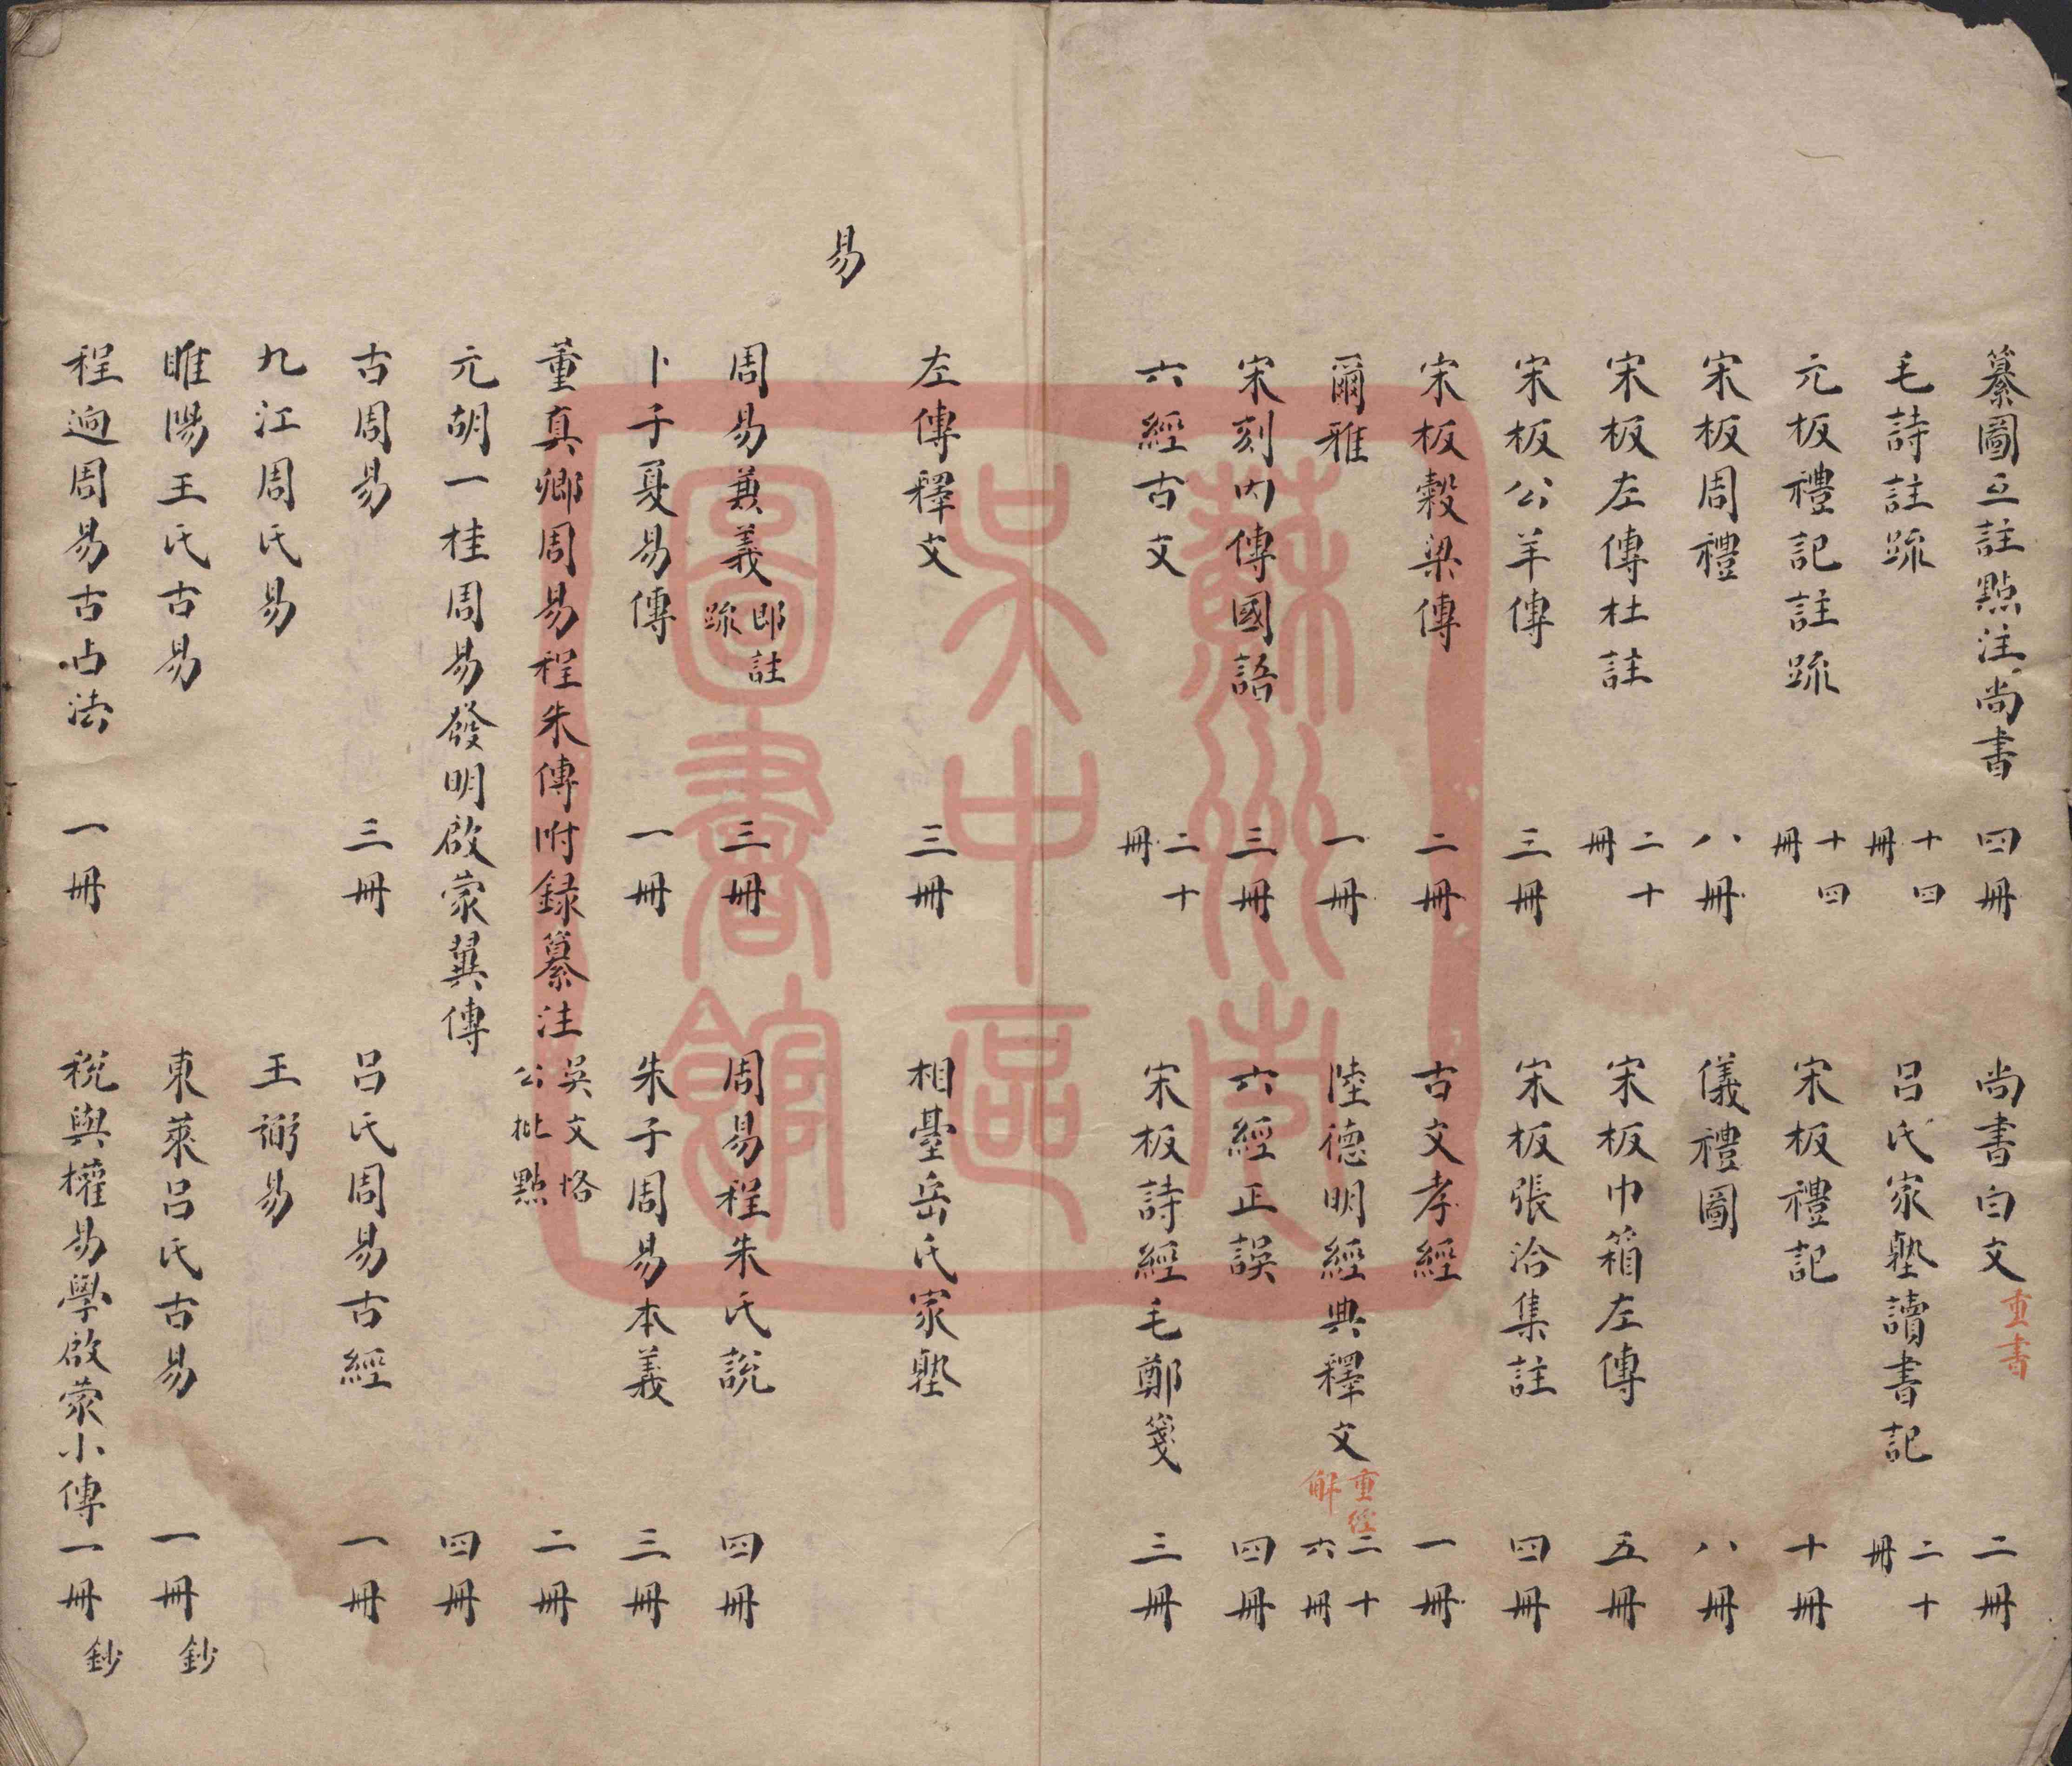 纂圖互註點注尚書 四冊 尚書白文 重書 二冊
毛詩註疏 十四冊 呂氏家塾讀書記 二十冊
元板禮記註疏 十四冊 宋板禮記 十冊
宋板周禮 八冊 儀禮圖 八冊
宋板左傳杜註 二十冊 宋板巾箱左傳 五冊
宋板公羊傳 三冊 宋板張洽集註 四冊
宋板穀梁傳 二冊 古文孝經 一冊
爾雅 一冊 陸德明經典釋文 重經解 二十六冊
宋刻內傳國語 三冊 六經正誤 四冊
六經古文 二十冊 宋板詩經毛鄭箋 三冊
左傳釋文 三冊 相臺岳氏家塾
易
周易兼義 即註疏 三冊 周易程朱氏說 四冊
卜子夏易傳 一冊 朱子周易本義 三冊
董真卿周易程朱傳附録纂注 吳文恪公批點 二冊
元胡一桂周易發明啟蒙翼傳 四冊
古周易 三冊 呂氏周易古經 一冊
九江周氏易 王弼易
睢陽王氏古易 東萊呂氏古易 一冊 鈔
程迥周易古占法 一冊 稅與權易學啟蒙小傳 一冊 鈔
蘇州市
吳中區
圖書館